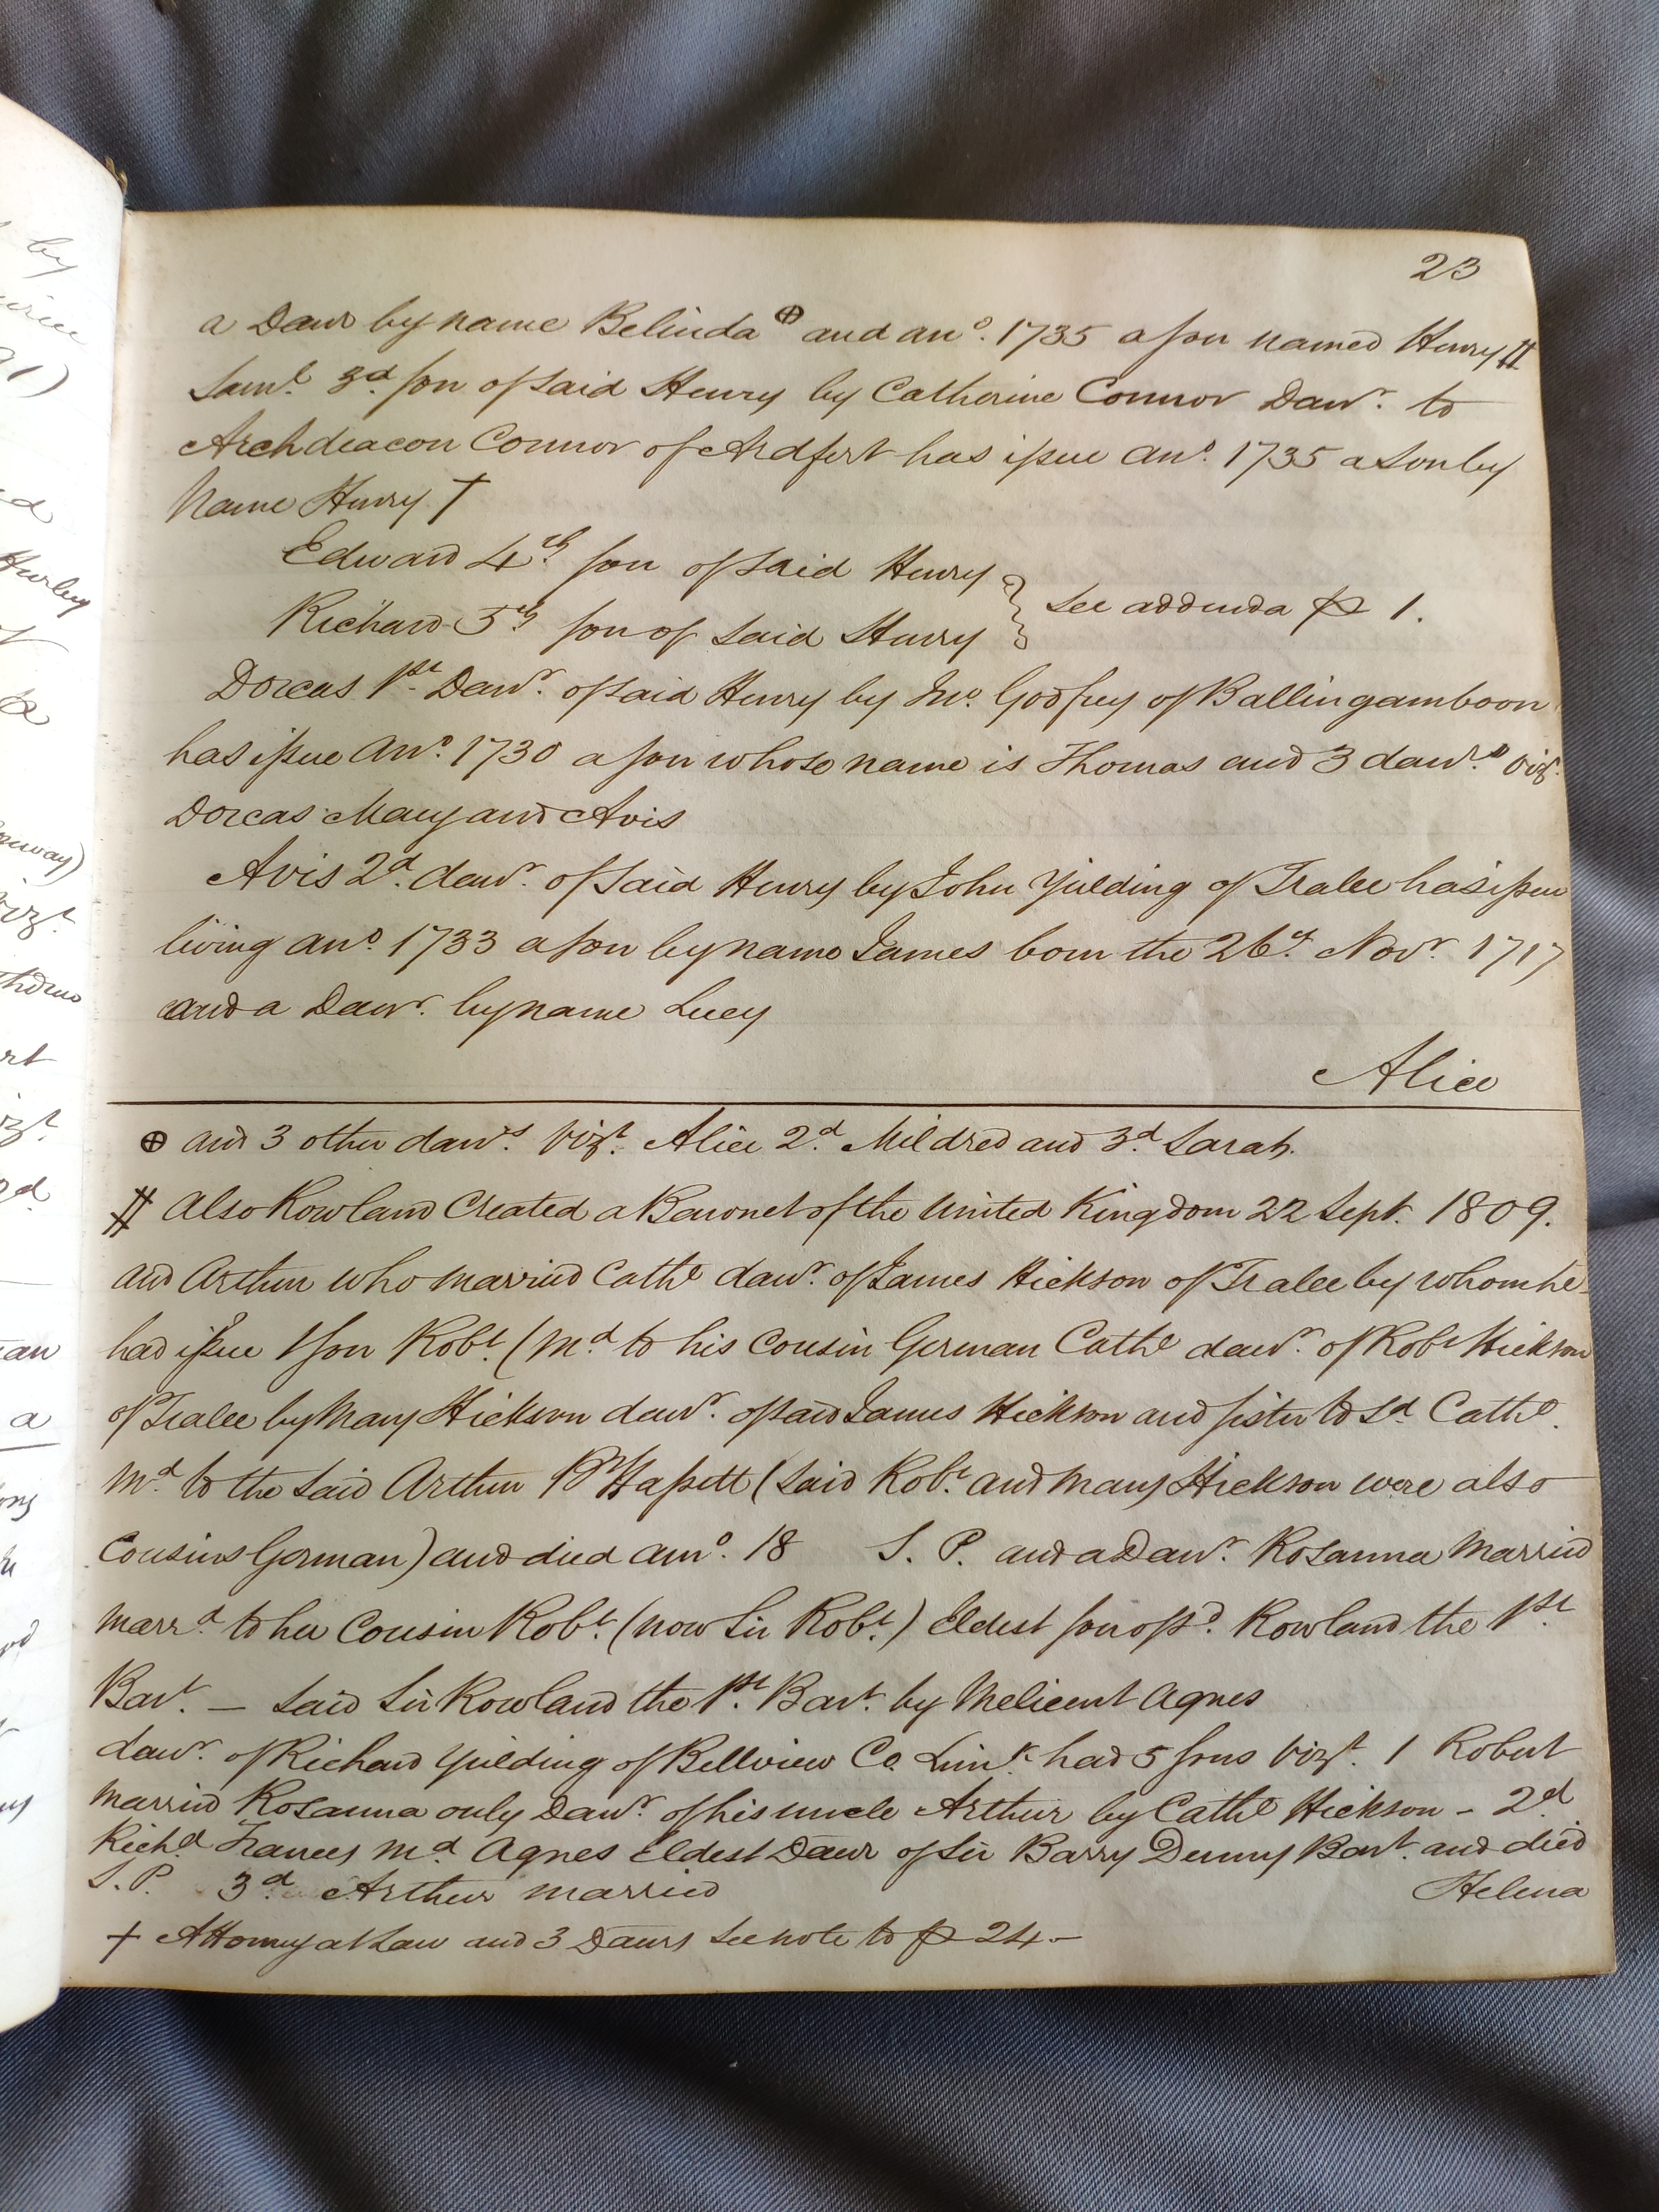 23
a Dawr by name Belinda ⊕ and ano. 1735 a son named Henry ‡‡
Saml. 3d. son of said Henry by Catherine Connor Dawr. to
Archdeacon Connor of Ardfert has issue ano. 1735 a son by
Name Henry †
Edward 4th. son of said Henry
Richard 5th. son of said Henry } See addenda p 1.
Dorcas 1st. Dawr. of said Henry by Jno. Godfrey of Ballingamboon
has issue ano. 1730 a son whose name is Thomas and 3 dawrs. vizt.
Dorcas Mary and Avis
Avis 2d. dawr. of said Henry by John Yielding of Tralee has issue
living ano. 1733 a son by name James born the 26th. Novr. 1717
and a Dawr. by name Lucy
Alice
⊕ and 3 other dawrs. vizt. Alice 2d. Mildred and 3d. Sarah.
‡‡ Also Rowland Created a Baronet of the United Kingdom 22 Sept. 1809.
and Arthur who married Cathe dawr. of James Hickson of Tralee by whom he
had issue 1 son Robt. (Md. to his Cousin German Cathe dawr. of Robt Hickson
of Tralee by Mary Hickson dawr. of said James Hickson and sister to sd Cathe.
Md. to the said Arthur Br Hassett (said Robt. and Mary Hickson were also
Cousins German) and died ano. 18 S. P. and a Dawr. Rosanna Married
Marrd. to her Cousin Robt. (now Sir Robt.) Eldest son of sd. Rowland the 1st.
Bart. — Said Sir Rowland the 1st. Bart. by Melicent Agnes
dawr. of Richard Yielding of Bellview Co. Limk. had 5 sons vizt. 1 Robert
Married Rosanna only Dawr. of his uncle Arthur by Cathe Hickson - 2d
Richd Frances Md Agnes Eldest Dawr of Sir Barry Denny Bart. and died
S.P. 3d Arthur married
Helena
† Attorney at Law and 3 Dawrs See note to p 24.—
by
ed
Hurley
vizt.
rt
2d
an
a